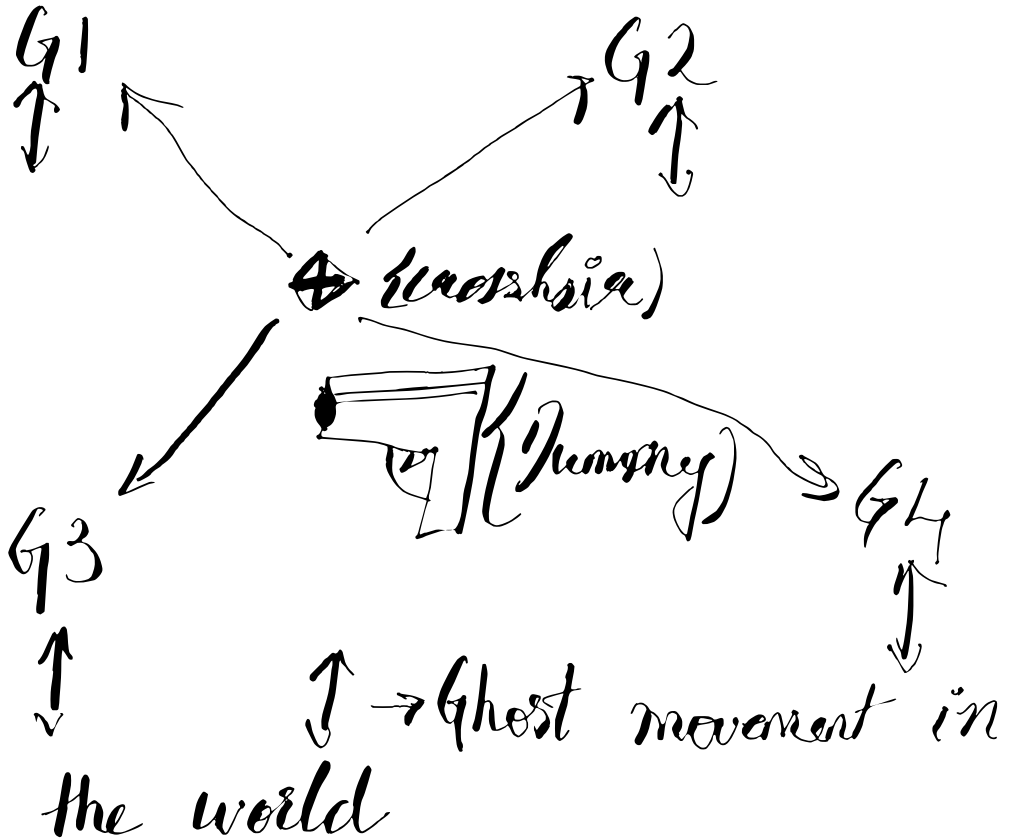 G1
G2
(crosshair)
(Dummy)
G3
G4
→ Ghost movement in
the world